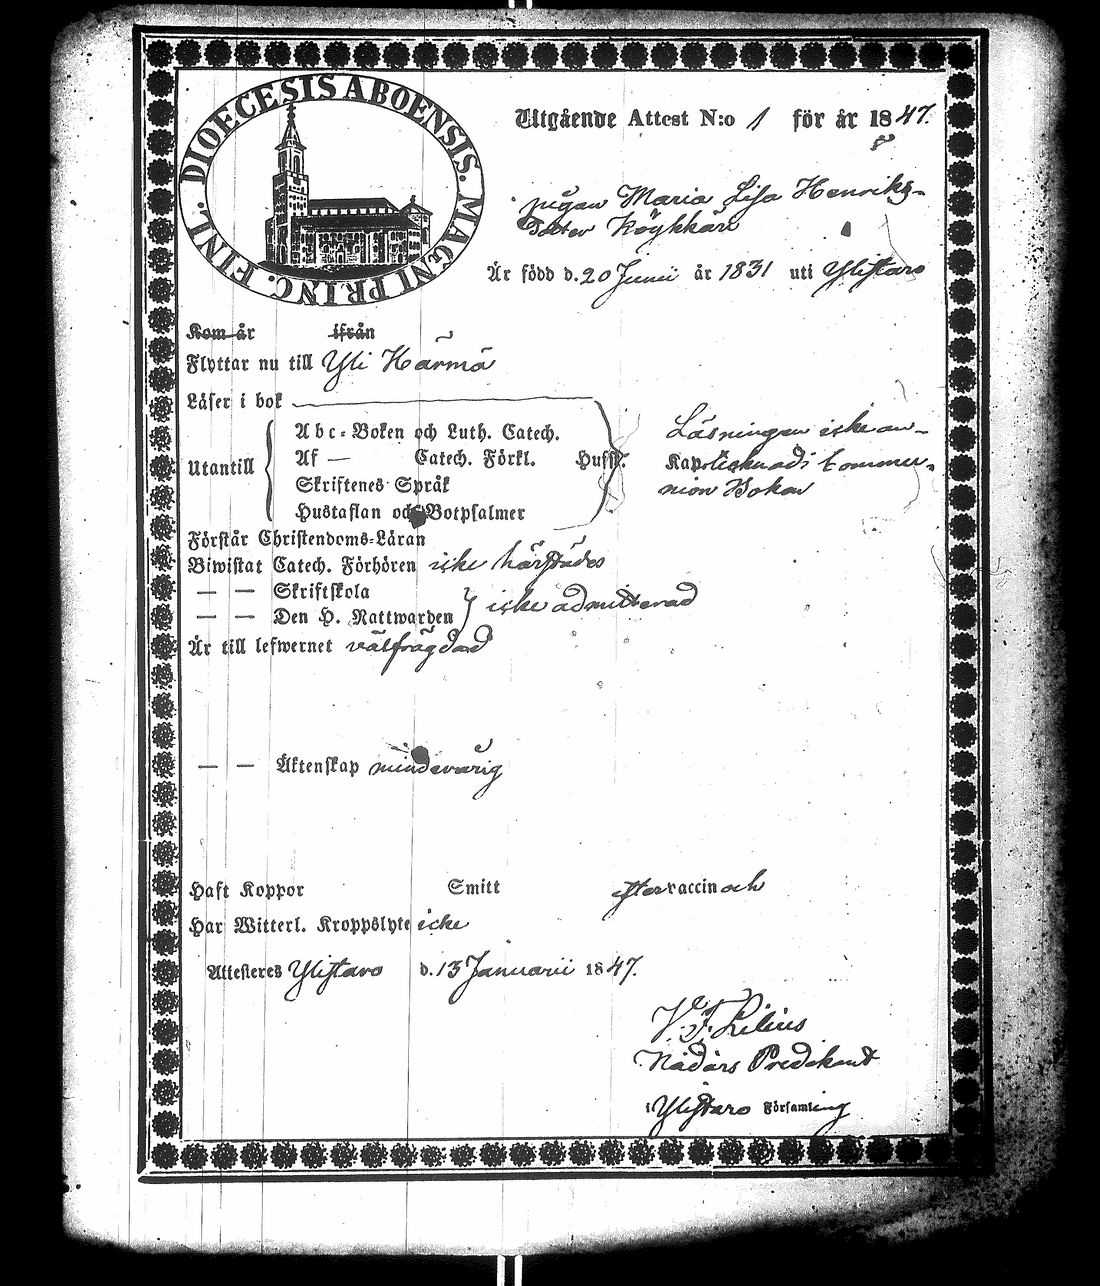 DIOECESIS ABOENSIS. MAGNI PRINC. FINL.
Utgående Attest N:o 1 för år 1847.
8
pigan Maria Lisa Henriks-
dotter Köykkäri
Är född d. 20 Junii år 1831 uti Ylistaro
Kom år ifrån
Flyttar nu till Yli Härmä
Läser i bok
Abc-Boken och Luth. Catech.
Utantill Af — Catech. Förkl. Hufst. Kap
Skriftenes Språk
Hustaflan och Botpsalmer
Läsningen icke an-
tecknad i Commu-
nion Boken
Förstår Christendoms-Läran
Biwistat Catech. Förhören icke härstädes
— — Skriftskola
— — Den H. Nattwarden } icke admitterad
Är till lefwernet välfrägdad
— — Äktenskap mindevärig
Haft Koppor Smitt efter vaccin och
Har Witterl. Kroppslyte icke
Attesteres Ylistaro d. 13 Januarii 1847.
V. F. Lilius
Nådårs Predikant
i Ylistaro Församling